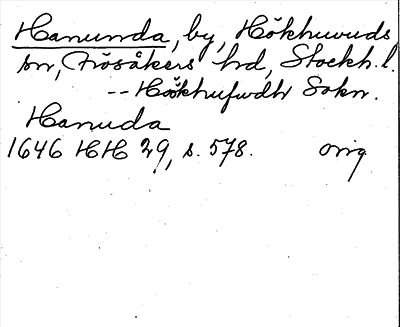 Hanunda, by, Hökhuvuds
sn, Frösåkers hd, Stockh. l.
-- Hökhufwdh Sokn.
Hanuda
1646 HH 29, s. 578. orig